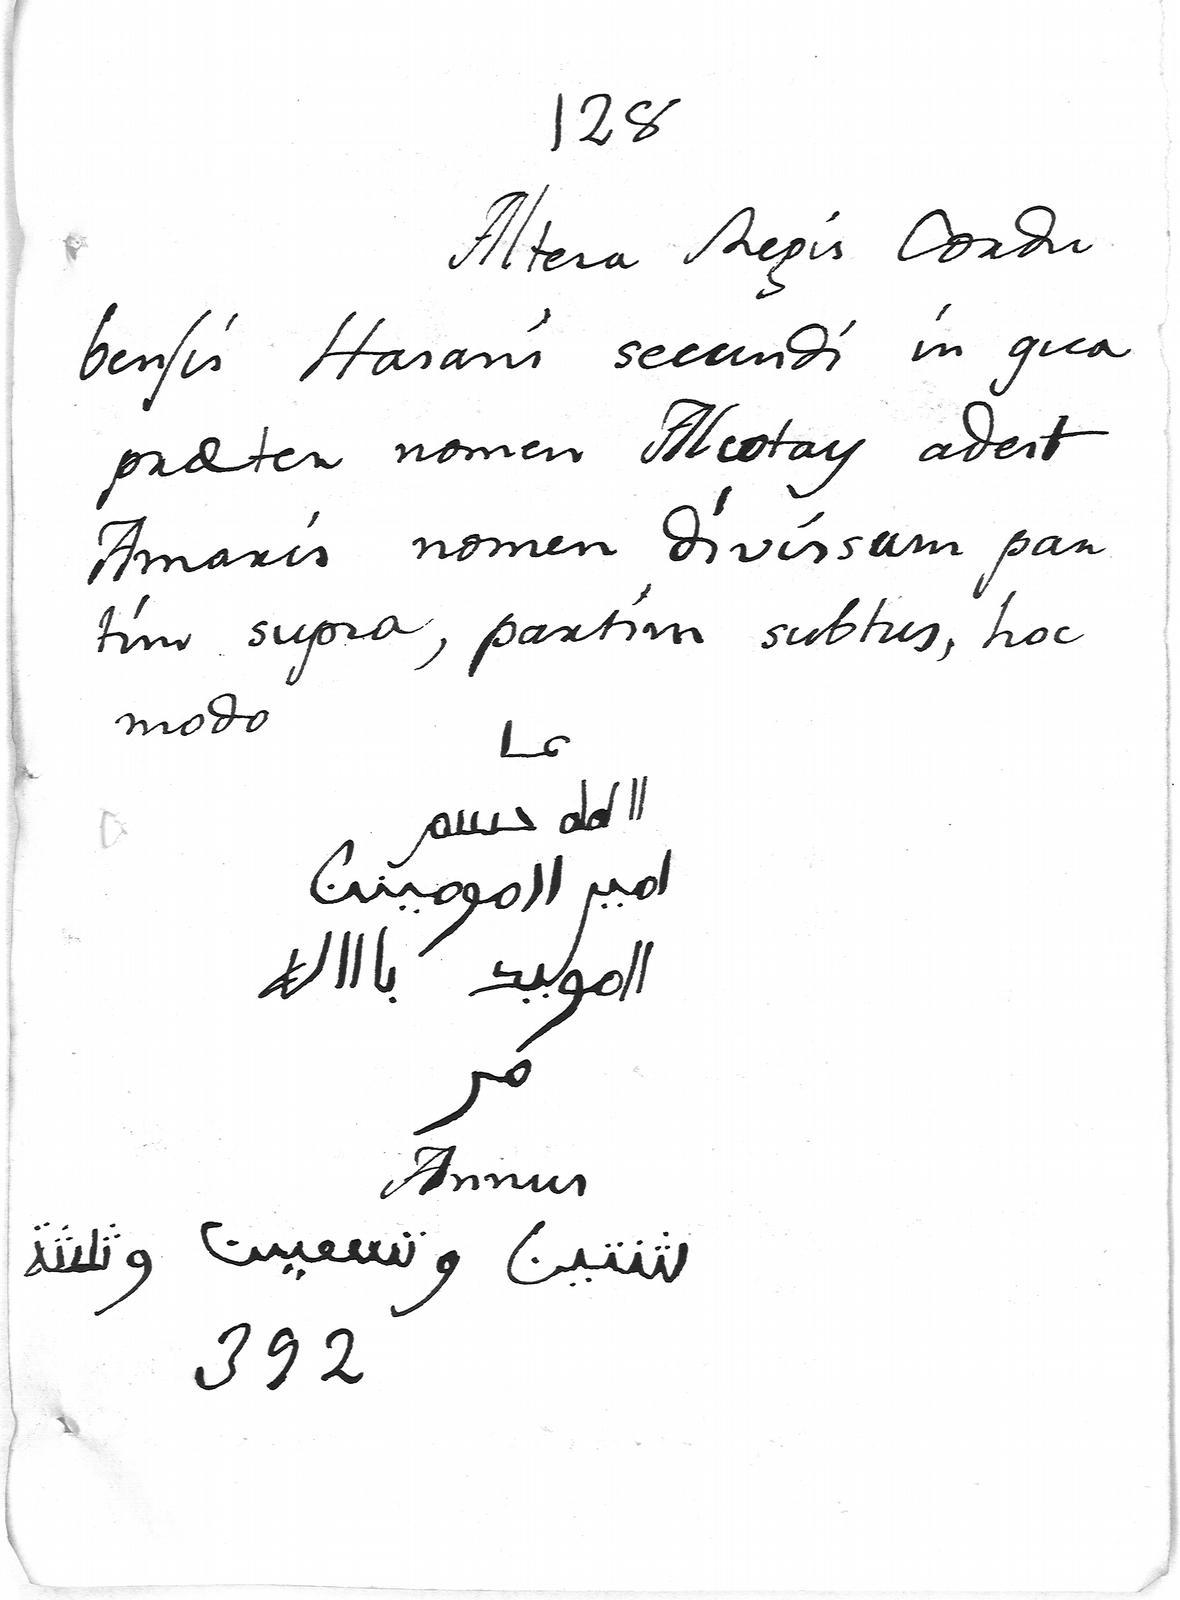 128
Altera Regis Cordu
bensis Hasami secundi in qua
præter nomen adest
Amaris nomen divissum par
tim supra, partim subtus, hoc
modo
عا
امير المومينين
المويد باالله
مر
Annus
ثنتين وتسعين وثلثة
392